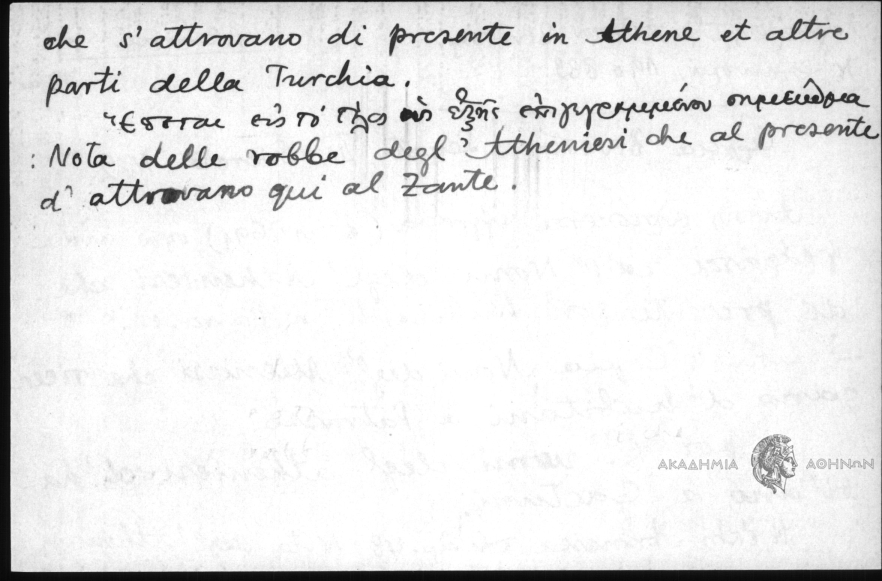 che s'attrovano di presente in Athene et altre
parti della Turchia.
Ἕπεται εἰς τὸ τέλος ὡς ἑξῆς ἐπιγεγραμμένον σημείωμα
: Nota delle robbe degl' Atheniesi che al presente
d' attrovano qui al Zante.
ΑΚΑΔΗΜΙΑ ΑΘΗΝΩΝ